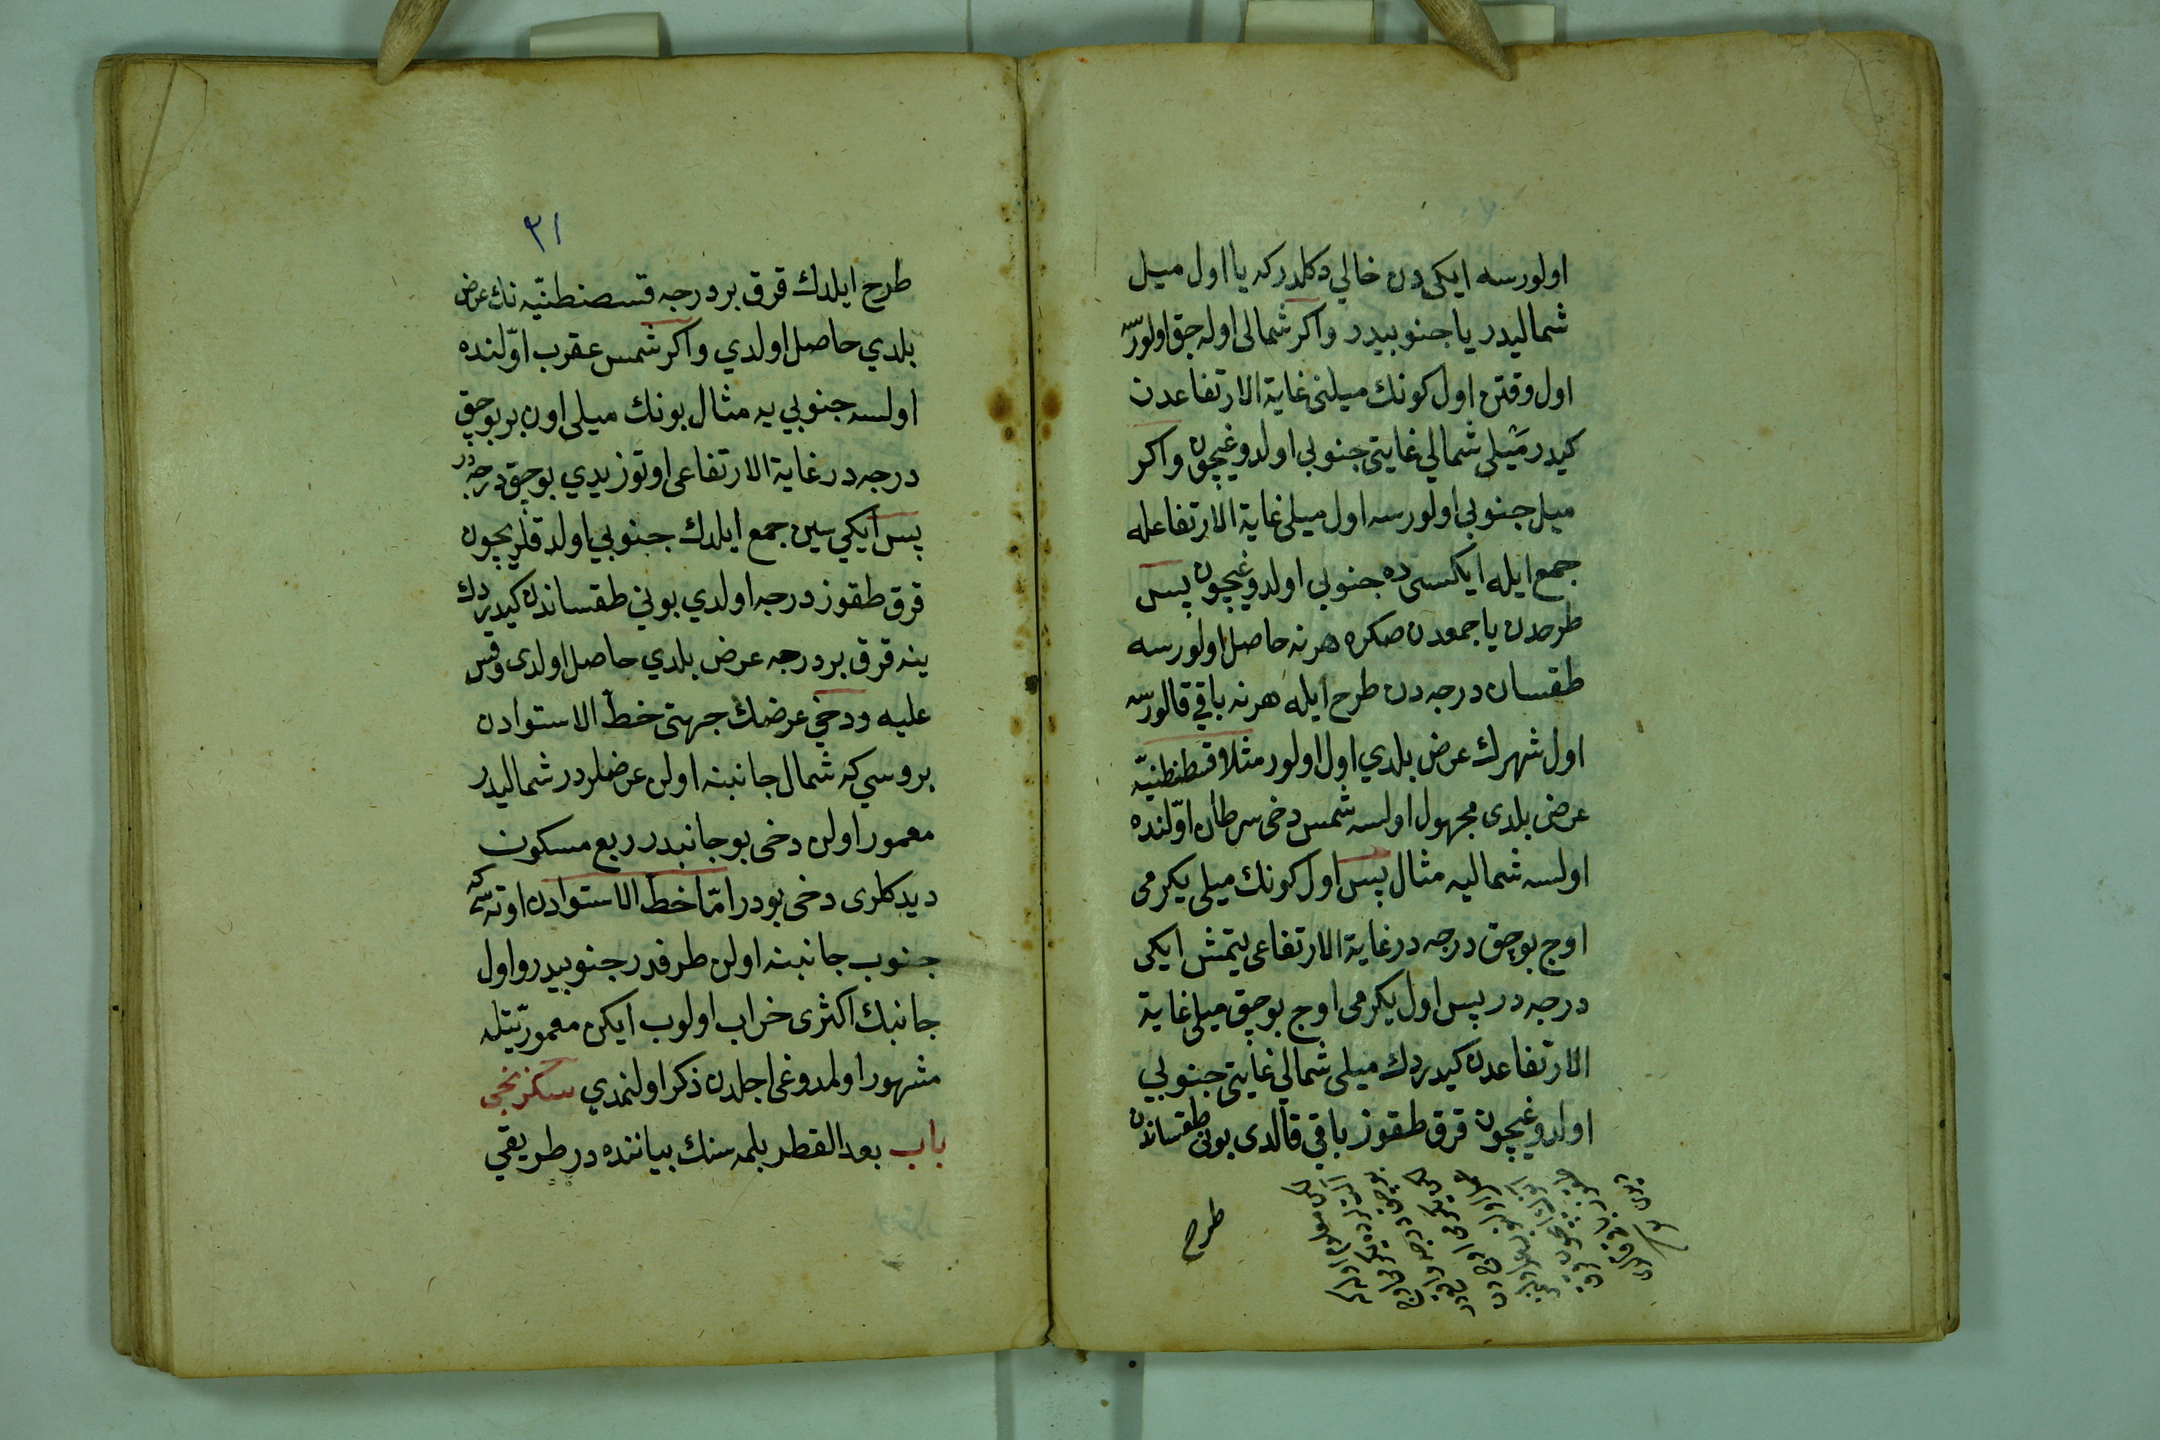 اولورسه ايكى دن خالي دكلدر كه يا اول ميل
شماليدر يا جنوبيدر واكر شمالى اوله جق اولورسه
اول وقتن اول كونك ميلنى غاية الارتفاعدن
كيدر ميلى شمالي غايتى جنوبى اولدوغيچون واكر
ميل جنوبى اولورسه اول ميلى غاية الارتفاعله
جمع ايله ايكسى ده جنوبى اولدوغيچون پس
طرحدن يا جمعدن صكره هرنه حاصل اولورسه
طقسان درجه دن طرح ايله هرنه باقي قالورسه
اول شهرك عرض بلدي اول اولور مثلا قسطنطنيّه
عرض بلدى مجهول اولسه شمس دخى سرطان اوّلنده
اولسه شماليه مثال پس اول كونك ميلى يكرمى
اوج بوچق درجه در غاية الارتفاعى يتمش ايكى
درجه در پس اول يكرمى اوج بوچق ميلى غاية
الارتفاعدن كيدردك ميلى شمالي غايتى جنوبي
اولدوغيچون قرق طقوز باقي قالدى بونى طقساندن
طرح
٣١
طرح ايلدك قرق بر درجه قسصنطنيّه نك عرض
بلدي حاصل اولدي واكر شمس عقرب اوّلنده
اولسه جنوبي يه مثال بونك ميلى اون بر بوچق
درجه در غاية الارتفاعى اوتوز يدي بوچق درجه در
پس ايكي سين جمع ايلدك جنوبي اولدقلريچون
قرق طقوز درجه اولدي بوني طقساندن كيدردك
ينه قرق بر درجه عرض بلدي حاصل اولدى وقس
عليه ودخي عرضك جهتى خط الاستوادن
بروسي كه شمال جانبنه اولن عرضلردر شماليدر
معمور اولن دخى بو جانبدر ربع مسكون
ديدكلرى دخى بودر امّا خط الاستوادن اوته سى كه
جنوب جانبنه اولن طرفدر جنوبيدر واول
جانبك اكثرى خراب اولوب ايكن معموريّتله
مشهور اولمدوغى اجلدن ذكر اولنمدي سكزنجى
باب بعد القطر بلمه سنك بياننده در طريقي